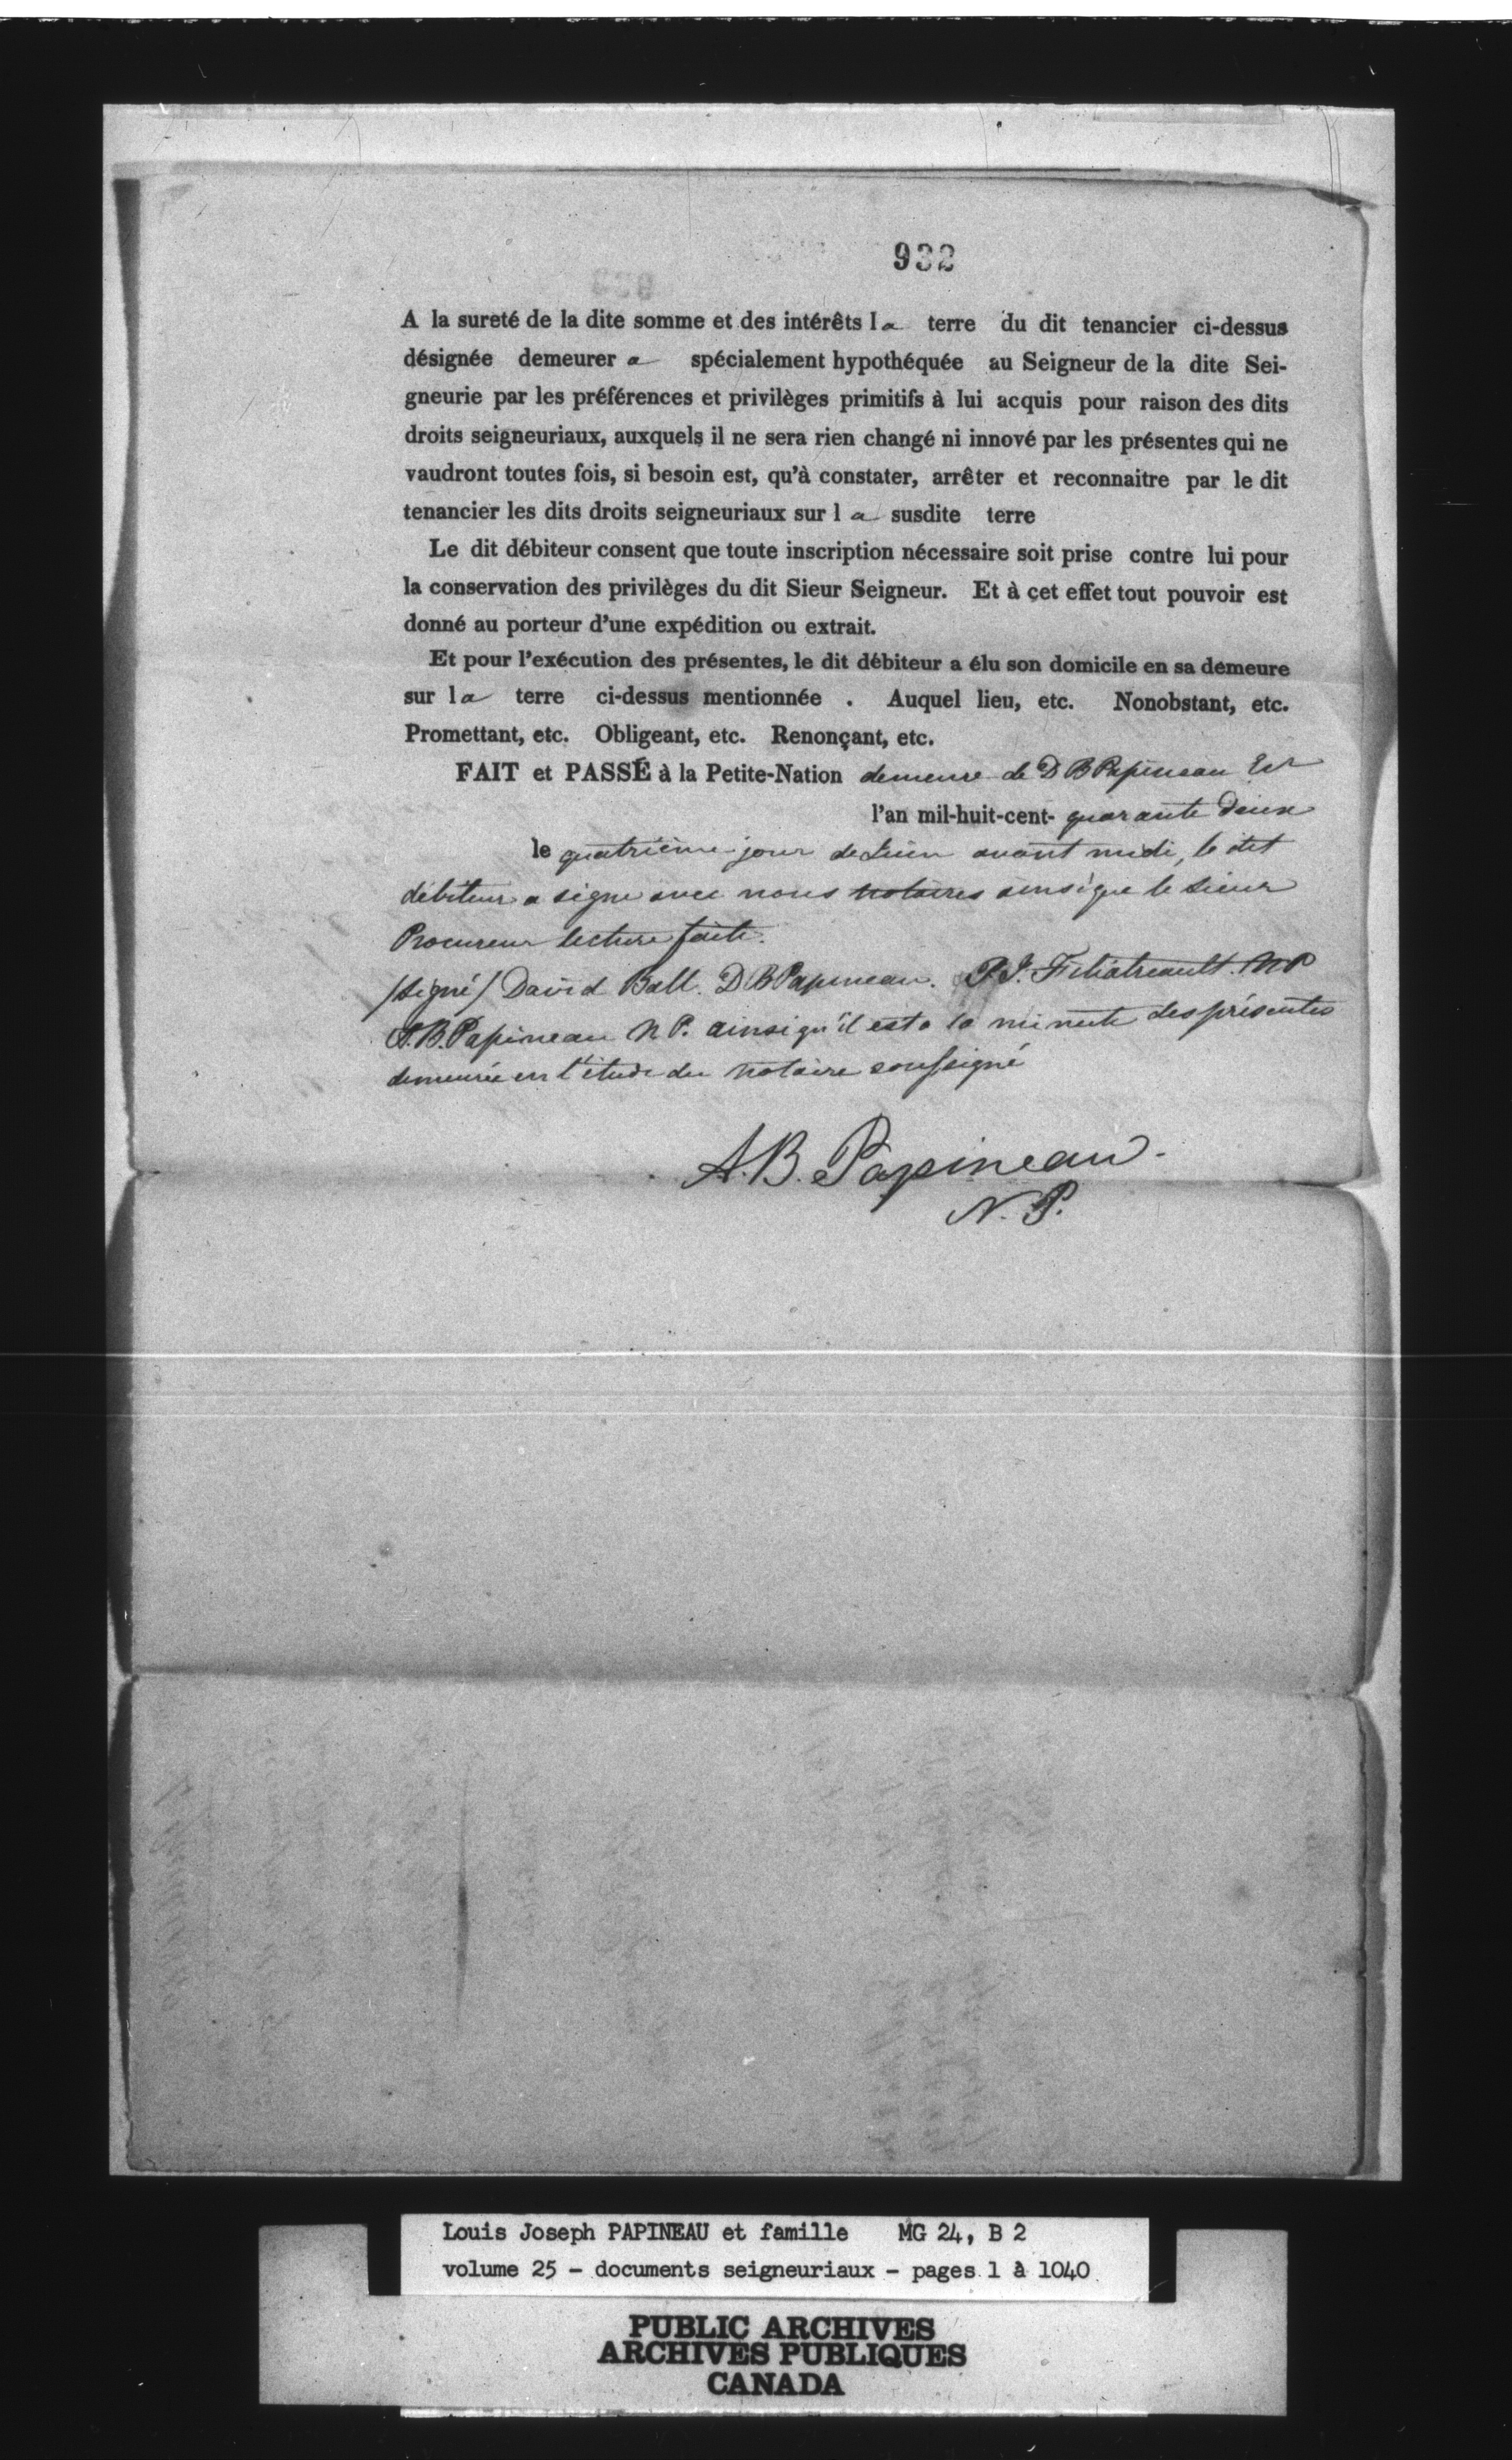 932
A la sureté de la dite somme et des intérêts la terre du dit tenancier ci-dessus
désignée demeurera spécialement hypothéquée au Seigneur de la dite Sei-
gneurie par les préférences et privilèges primitifs à lui acquis pour raison des dits
droits seigneuriaux, auxquels il ne sera rien changé ni innové par les présentes qui ne
vaudront toutes fois, si besoin est, qu'à constater, arrêter et reconnaitre par le dit
tenancier les dits droits seigneuriaux sur la susdite terre
Le dit débiteur consent que toute inscription nécessaire soit prise contre lui pour
la conservation des privilèges du dit Sieur Seigneur. Et à cet effet tout pouvoir est
donné au porteur d'une expédition ou extrait.
Et pour l'exécution des présentes, le dit débiteur a élu son domicile en sa demeure
sur la terre ci-dessus mentionnée . Auquel lieu, etc. Nonobstant, etc.
Promettant, etc. Obligeant, etc. Renonçant, etc.
FAIT et PASSÉ à la Petite-Nation demeure de D B Papineau Esr
l'an mil-huit-cent- quarante deux
le quatrième jour de Juin avant midi, le dit
débiteur a signé avec nous notaires ainsi que le Sieur
Procureur lecture faite.
/signé/ David Ball. D B Papineau. F. Filiatreault. N P
A. B. Papineau N P. ainsi qu'il est a la minute des présentes
demeurée en l'étude du notaire soussigné
A. B. Papineau.
N. P.
Louis Joseph PAPINEAU et famille MG 24, B 2
volume 25 - documents seigneuriaux - pages 1 à 1040
PUBLIC ARCHIVES
ARCHIVES PUBLIQUES
CANADA